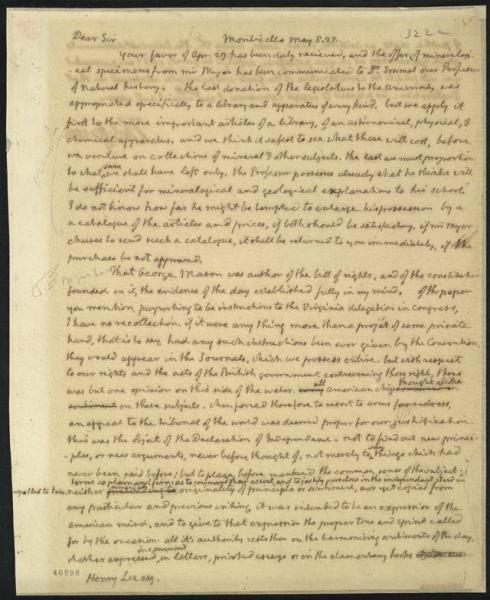 Dear Sir Monticello May 8. 25. 322
Your favor of Apr. 29 has been duly recieved, and the offer of mineralogi-
-cal specimens from mr Myer has been communicated to Dr. Emmet our Professor
of natural history. the last donation of the legislature to the University, was
appropriated specifically to a library and apparatus of every kind. but we apply it
first to the more important articles of a library, of an astronomical, physical, &
chemical apparatus. and we think it safest to see what these will cost, before
we venture on collections of mineral & other subjects. the last we must proportion
to what sum we shall have left only. the Professor possesses already what he thinks will
be sufficient for mineralogical and geological explanations to his school.
I do not know how far he might be tempted to enlarge his possession by a
a catalogue of the articles and prices, if both should be satisfactory. if mr Myer
chuses to send such a catalogue, it shall be returned to you immediately, if the
purchase be not approved.
That George Mason was author of the bill of rights, and of the constitution
founded on it, the evidence of the day established fully in my mind. of the paper
you mention, purporting to be instructions to the Virginia delegation in Congress,
I have no recollection. if it were any thing more than a project of some private
hand, that is to say, had any such instructions been ever given by the Convention,
they would appear in the Journals, which we possess entire. but with respect
to our rights and the acts of the British government contravening those rights, there
was but one opinion on this side of the water. all American whigs thought alike
on these subjects. when forced therefore to resort to arms for redress,
an appeal to the tribunal of the world was deemed proper for our justification.
this was the object of the Declaration of Independance. not to find out new princi-
-ples, or new arguments, never before thought of, not merely to say things which had
never been said before; but to place before mankind the common sense of the subject;
terms so plain and firm as to command their assent, and to justify ourselves in the independant stand we
-mpelled to take. neither aiming at originality of principle or sentiment, nor yet copied from
any particular and previous writing, it was intended to be an expression of the
american mind, and to give to that expression the proper tone and spirit called
for by the occasion. all it's authority rests then on the harmonising sentiments of the day,
whether expressed in conversns in letters, printed essays or in the elementary books
Henry Lee esq.